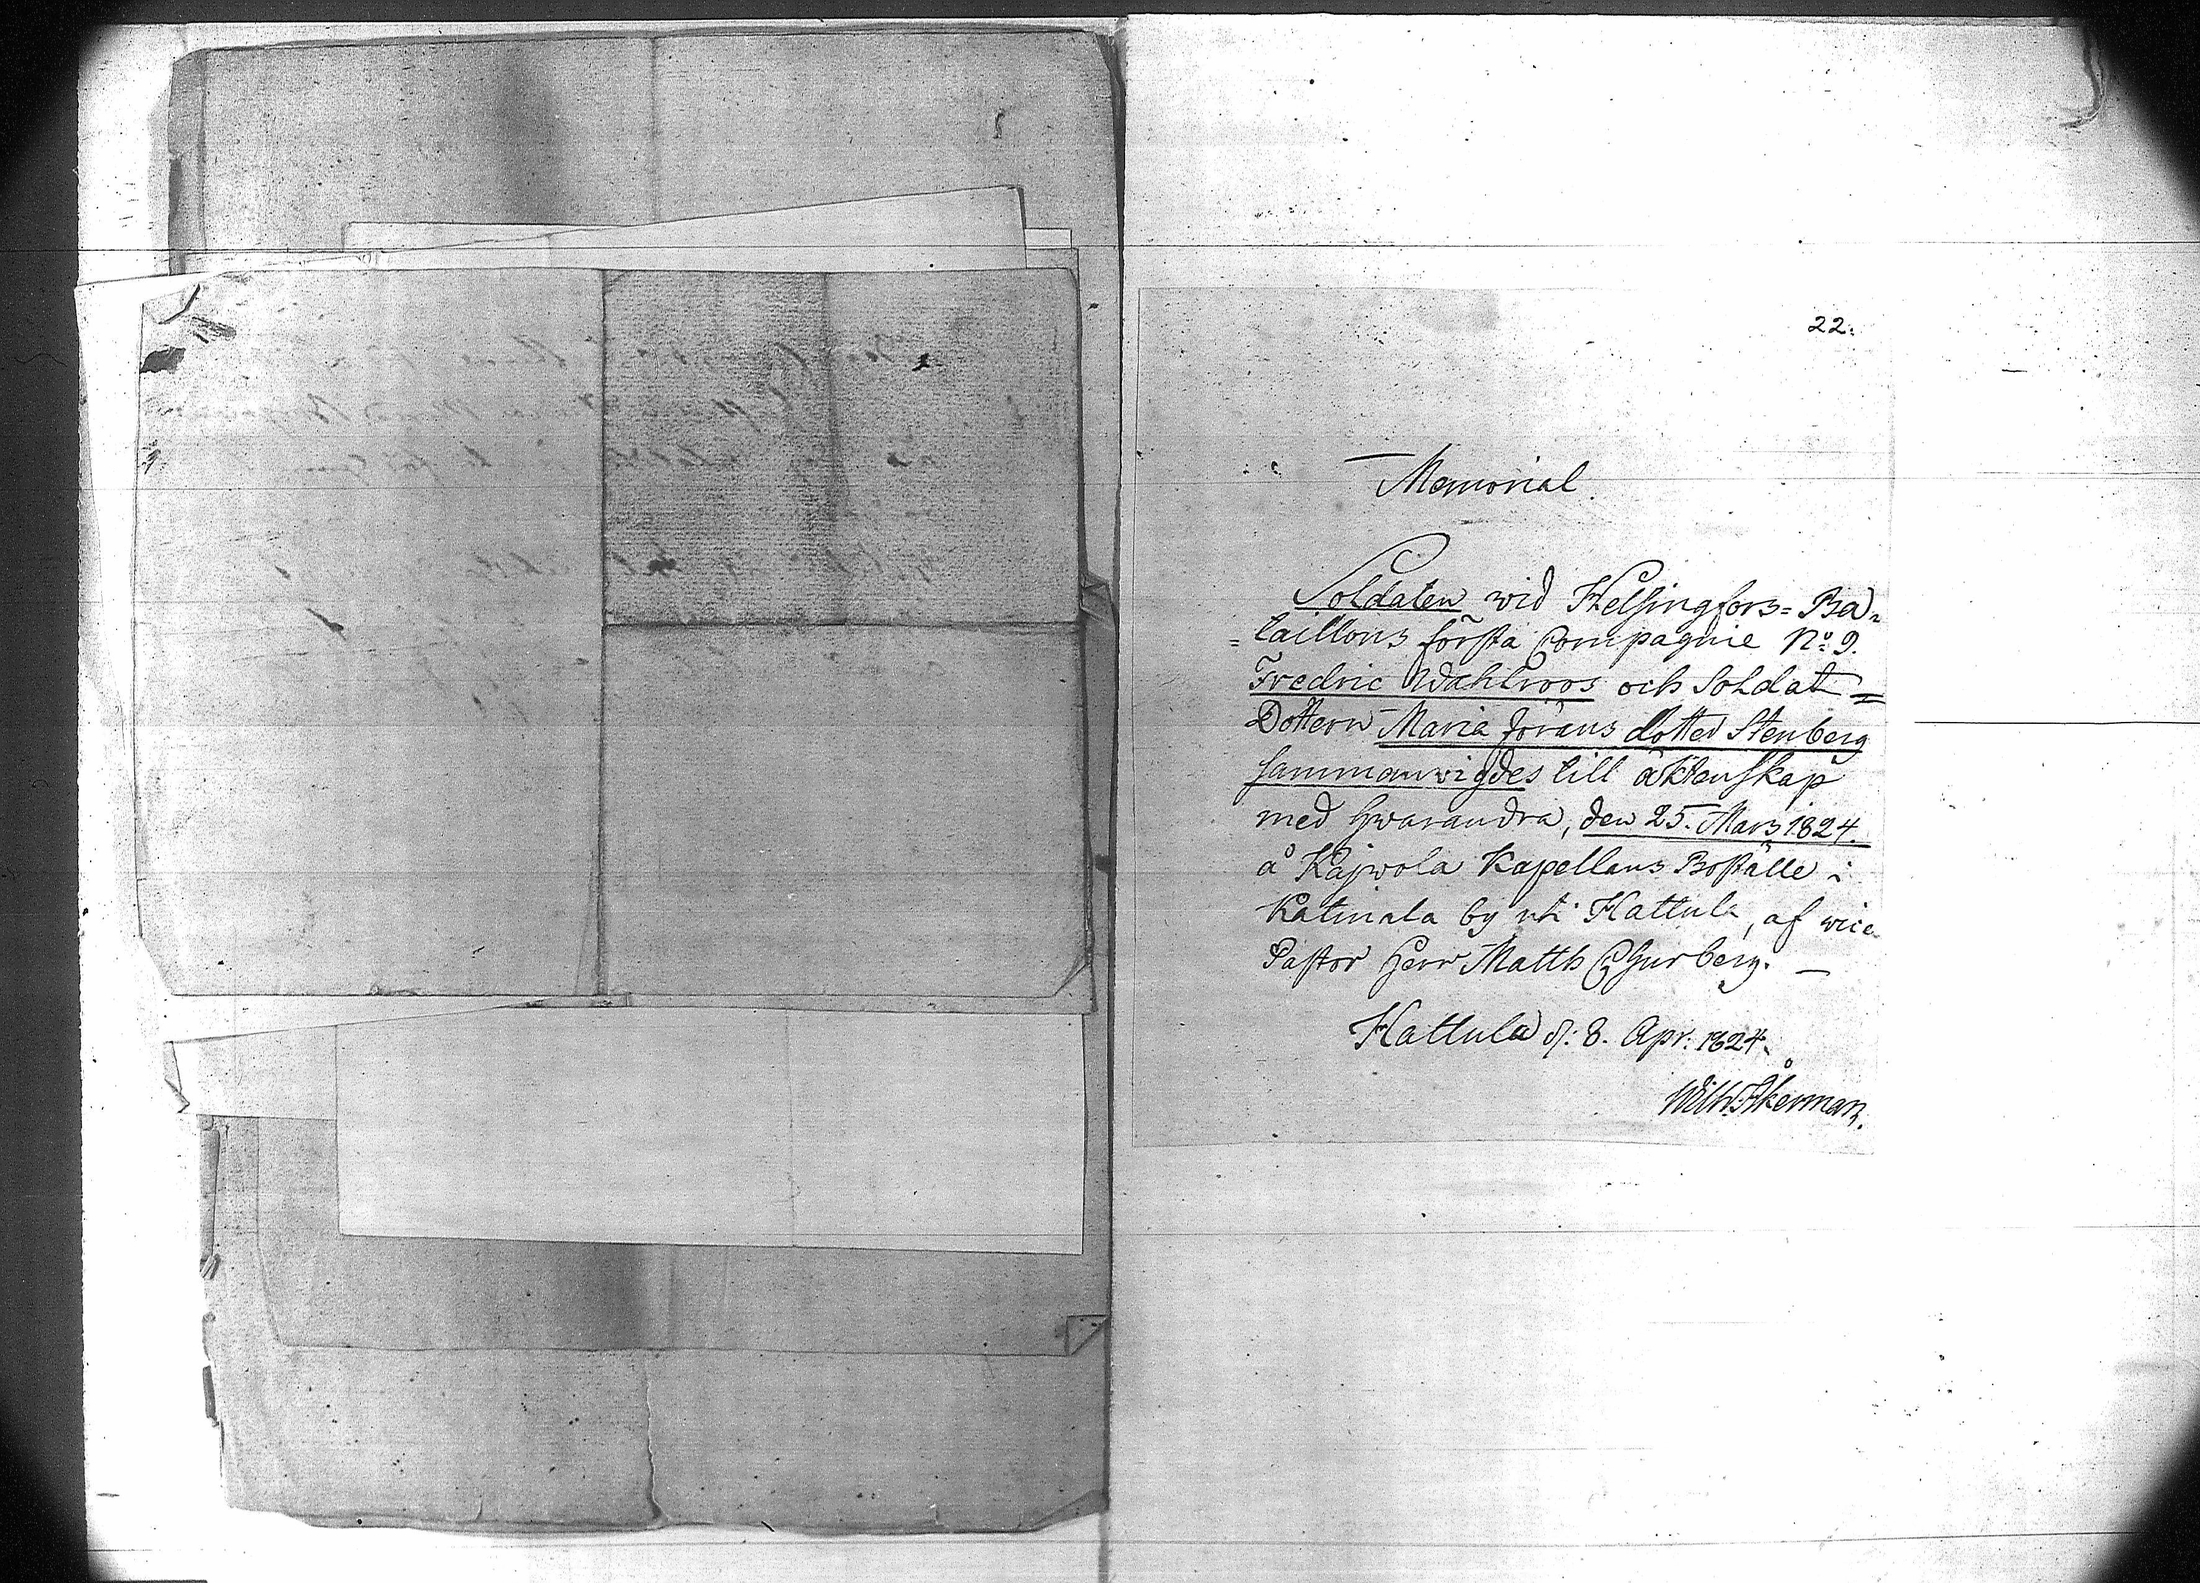 22.
Memorial.
Soldaten wid Helsingfors= Ba=
=taillons första Compagnie No: 9.
Fredric Wahlroos och Soldat=
Dottern Maria Jörans dotter Stenberg
sammanwigdes till äktenskap
med hwarandra, den 25. Mars 1824.
å Kajwola Kapellans Boställe i
Katinala by uti Hattula, af vice
Pastor Herr Matth Churberg. —
Hattula d: 8. Apr: 1824.
Wilh. Åkerman.